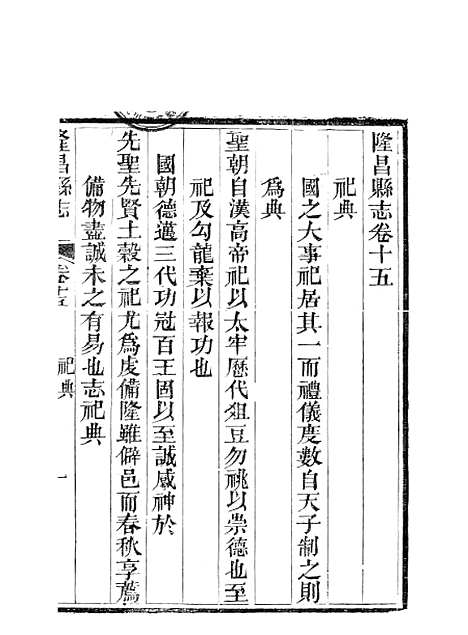 隆昌縣志卷十五
祀典
國之大事祀居其一而禮儀度數自天子制之則
爲典
聖朝自漢高帝祀以太牢歷代俎豆勿祧以崇德也至
祀及勾龍棄以報功也
國朝德邁三代功冠百王固以至誠感神於
先聖先賢土穀之祀尤爲虔備隆雖僻邑而春秋享薦
備物盡誠未之有易也志祀典
隆昌縣志 卷十五 祀典 一